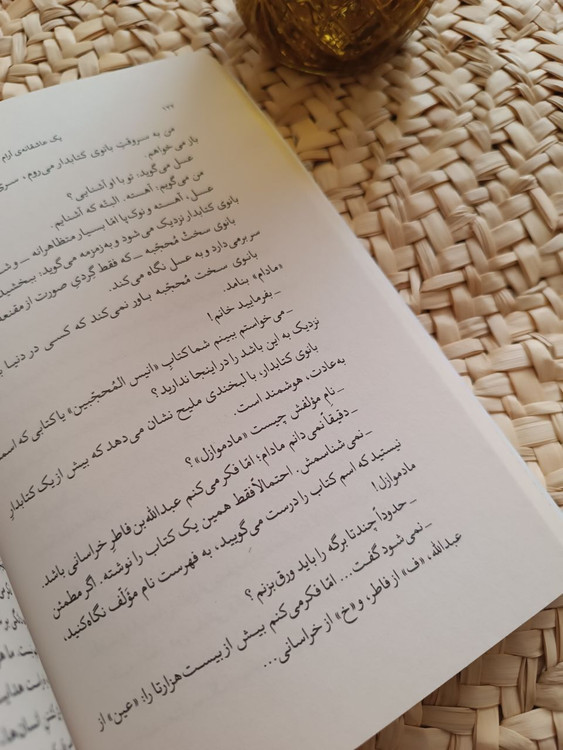 ۱۷۷
یک عاشقانه‌ی آرام
من به سروقتِ بانوی کتابدار می‌روم، سری
باز می‌خواهم.
عسل می‌گوید: تو با او آشنایی؟
من می‌گویم: آهسته. البتّه که آشنایم.
عسل، آهسته و نوکِ پا امّا بسیار متظاهرانه ـ و ش
بانوی کتابدار نزدیک می‌شود و به زمزمه می‌گوید: ببخشید
بانوی سختْ مُحجّبه ـ که فقط گِردیِ صورت از مقنعه
سر برمی‌دارد و به عسل نگاه می‌کند.
بانوی سخت مُحجّبه باور نمی‌کند که کسی در دنیا
«مادام» بنامد.
ـ بفرمایید خانم!
ـ می‌خواستم ببینم شما کتابِ «انیس المُحجّبین» یا کتابی که اسمش
نزدیک به این باشد را در اینجا ندارید؟
بانوی کتابدار، با لبخندی ملیح نشان می‌دهد که بیش از یک کتابدارِ
به‌عادت، هوشمند است.
ـ نامِ مؤلفش چیست «مادموازل»؟
ـ دقیقاً نمی‌دانم مادام؛ امّا فکر می‌کنم عبدالله بن فاطرِ خراسانی باشد.
ـ نمی‌شناسمش. احتمالاً فقط همین یک کتاب را نوشته. اگر مطمئن
نیستید که اسم کتاب را درست می‌گویید، به فهرست نام مؤلّف نگاه کنید،
مادموازل!
ـ حدوداً چندتا برگه را باید ورق بزنم؟
ـ نمی‌شود گفت... امّا فکر می‌کنم بیش از بیست هزارتا را: «عین» از
عبدالله، «ف» از فاطر، و «خ» از خراسانی...